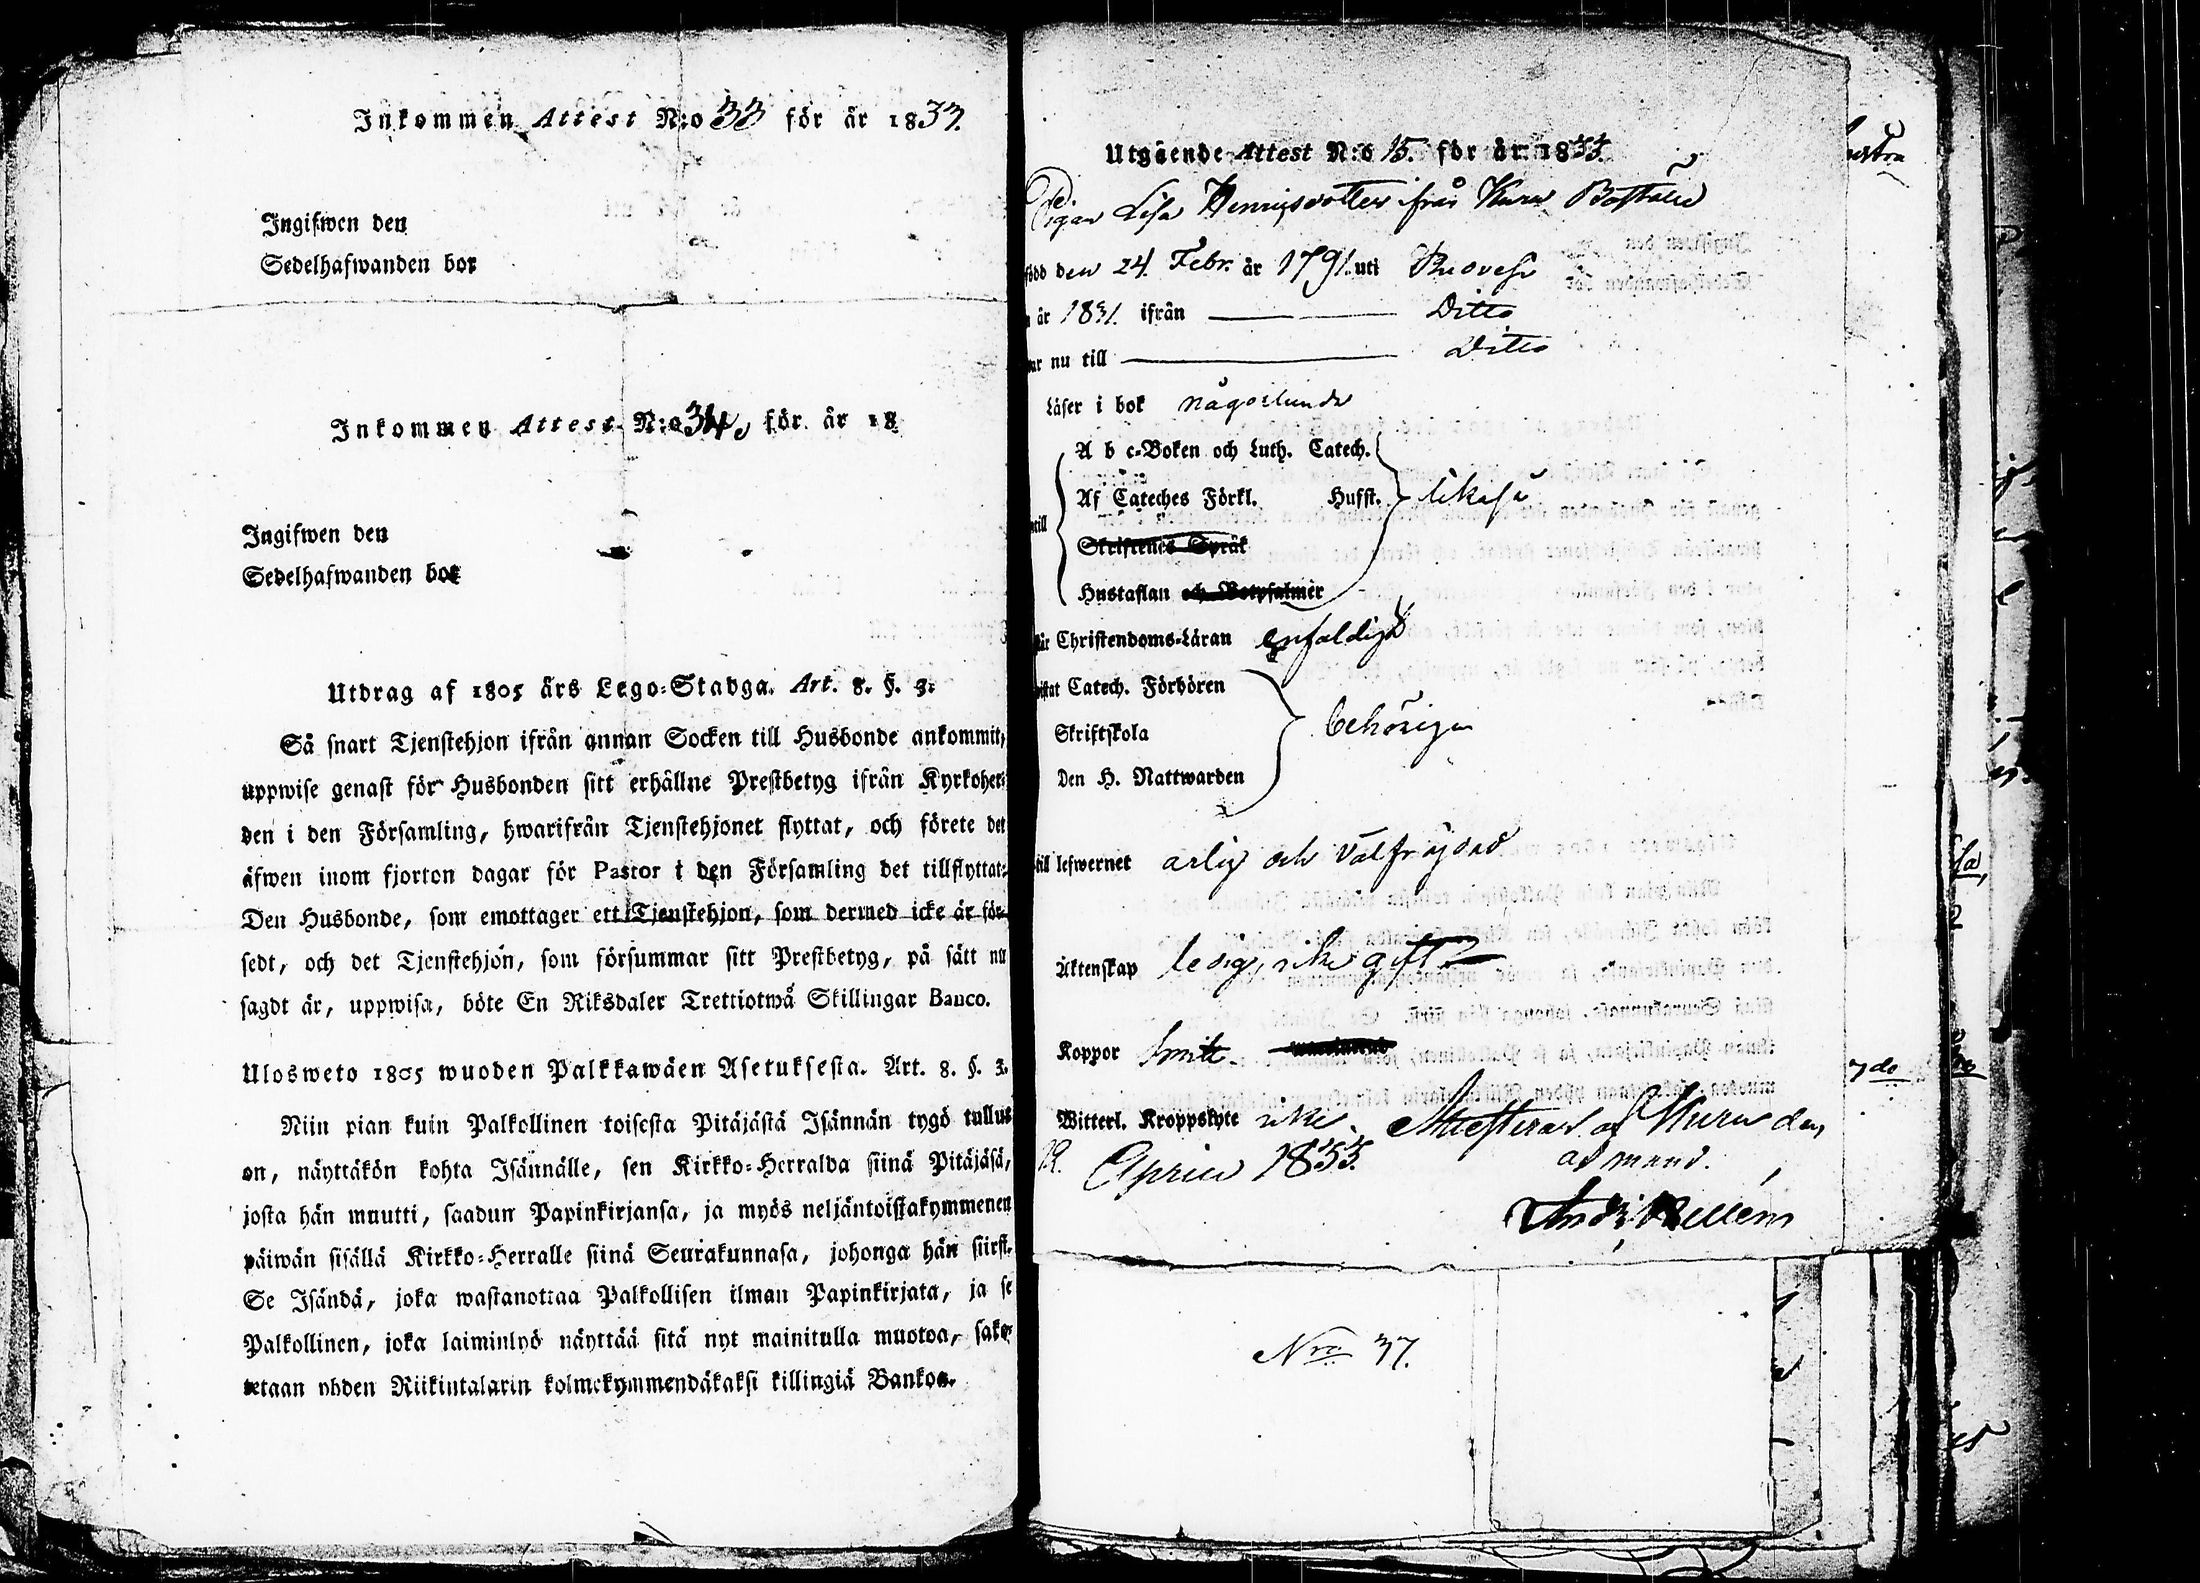 Inkommen Attest N:o 33 för år 1833.
Ingifwen den
Sedelhafwanden bor
Inkommen Attest N:o 34, för år 18
Ingifwen den
Sedelhafwanden bor
Utdrag af 1805 års Lego-Stadga. Art. 8. §. 3.
Så snart Tjenstehjon ifrån annan Socken till Husbonde ankommit,
uppwise genast för Husbonden sitt erhållne Prestbetyg ifrån Kyrkoher-
den i den Församling, hwarifrån Tjenstehjonet flyttat, och förete det
äfwen inom fjorton dagar för Pastor i den Församling det tillflyttat.
Den Husbonde, som emottager ett Tjenstehjon, som dermed icke är för-
sedt, och det Tjenstehjon, som försummar sitt Prestbetyg, på sätt nu
sagdt är, uppwisa, böte En Riksdaler Trettiotwå Skillingar Banco.
Ulosweto 1805 wuoden Palkkawäen Asetuksesta. Art. 8. §. 3.
Niin pian kuin Palkollinen toisesta Pitäjästä Isännän tygö tullut
on, näyttäkön kohta Isännälle, sen Kirkko-Herralda siinä Pitäjäsä,
josta hän muutti, saadun Papinkirjansa, ja myös neljäntoistakymmenen
päiwän sisällä Kirkko-Herralle siinä Seurakunnasa, johonga hän siirst.
Se Isändä, joka wastanottaa Palkollisen ilman Papinkirjata, ja se
Palkollinen, joka laiminlyö näyttää sitä nyt mainitulla muotoa, sako-
tetaan yhden Riikintalarin kolmekymmendäkaksi killingiä Bankoa.
Utgående Attest N:o 15. för år 1833.
Pigan Lisa Henricsdotter ifrån Kuru Boställe
född den 24. Febr. år 1791. uti Ruovesi
år 1831. ifrån Ditto
nu till Ditto
Läser i bok någorlunda
A b c-Boken och Luth. Catech.
Af Cateches Förkl. Hufst. likaså
till
Skriftenes Språk
Hustaflan och Botpsalmer
Christendoms-Läran enfaldigt
Catech. Förhören
Skriftskola behörigen
Den H. Nattwarden
till lefwernet ärlig och välfräjdad
Äktenskap ledig, icke gift
Koppor haft.
Witterl. Kroppslyte icke. Attesterad af Kuru den
19. Aprill 1833. ad mand.
Nro 37.